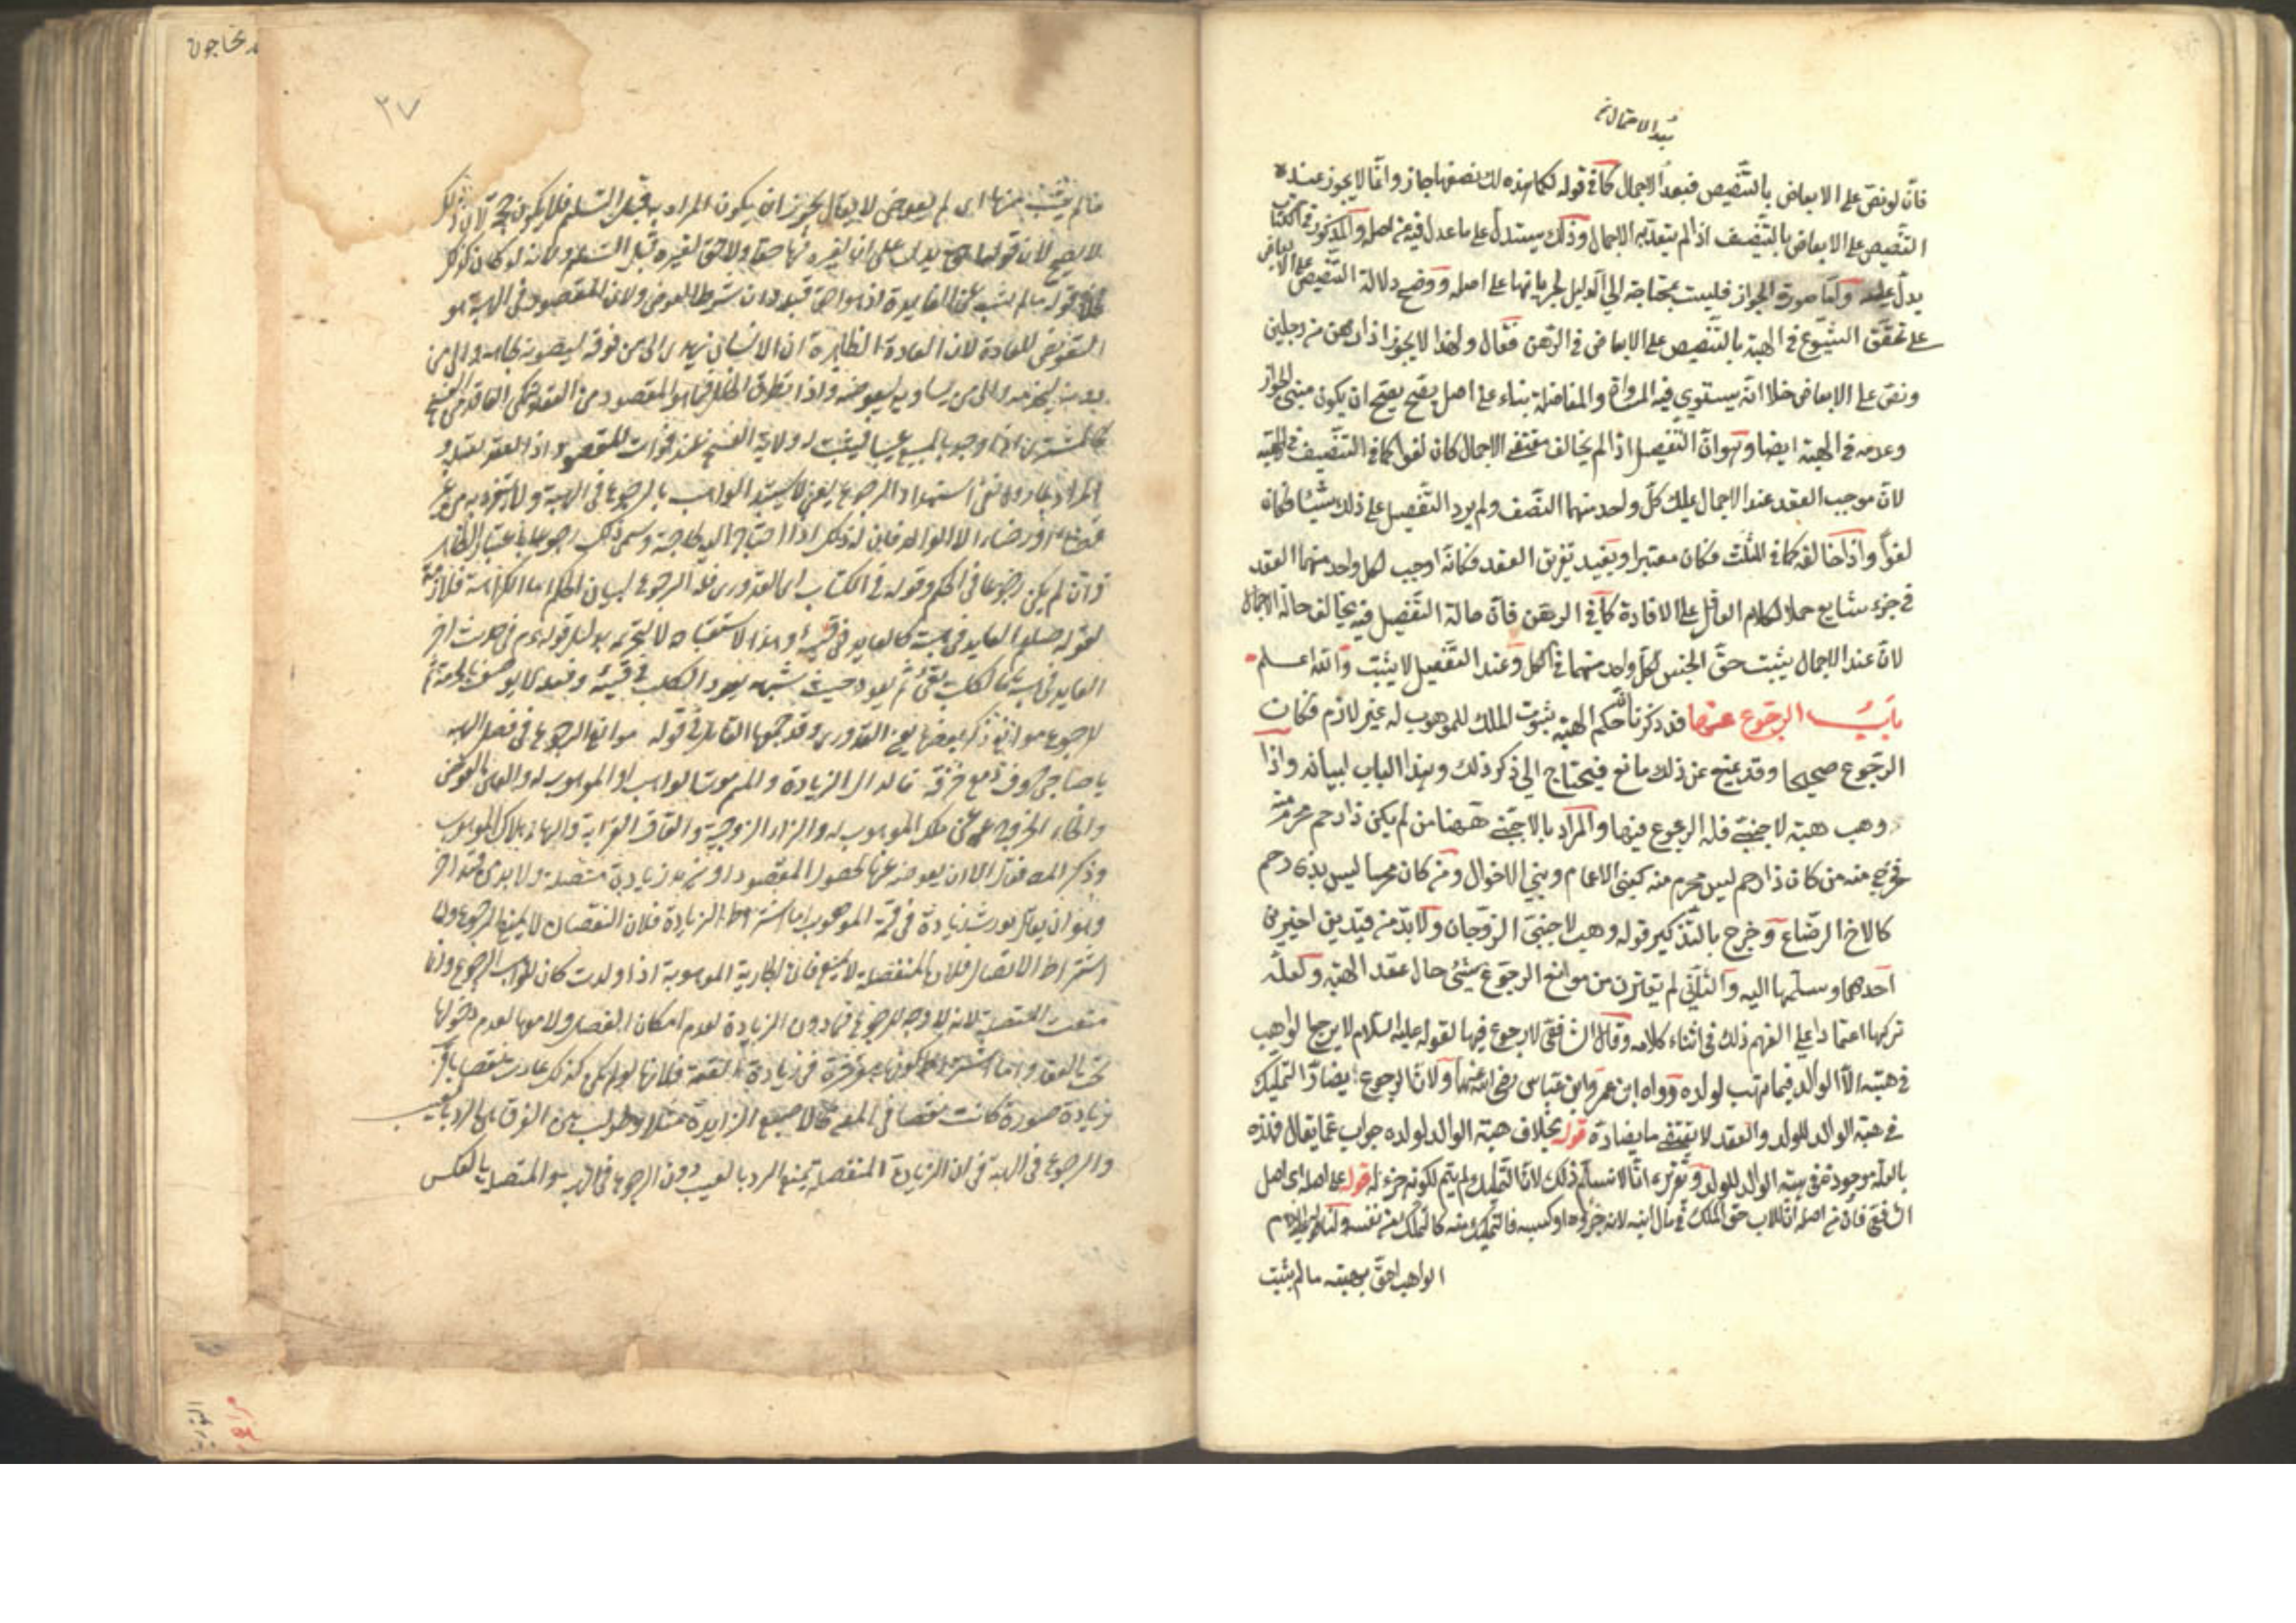 بعد الاجمال
فانه لو نص على الابعاض بالتنصيص فبعد الاجمال كما في قوله لكما هذه لك نصفها جاز وانما لا يجوز عند
التنصيص على الابعاض بالتنصيف اذا لم يتقدمه الاجمال وذلك يستدل على ما عدل فيه من اصله والمذكور في الكتاب
يدل عليه واما صورة الجواز فليست بمحتاجة الى الدليل لجريانها على اصله ووضح دلالة التنصيص على الابعاض
على تحقق الشيوع في الهبة بالتنصيص على الابعاض في الرهن فقال ولهذا لا يجوز اذا رهن من رجلين
ونص على الابعاض خلا انه يستوي فيه المساواة والمفاضلة بناء على اصل يصح ان يكون مبنى الجواز
وعدمه في الهبة ايضا وهو ان التفصيل اذا لم يخالف مقتضى الاجمال كان لغوا كما في التنصيف في الهبة
لان موجب العقد عند الاجمال يملك كل واحد منهما النصف ولم يزد التفصيل على ذلك شيئا فكان
لغوا واذا خالفه كما في الثلث فكان معتبرا ويفيد تفريق العقد فكانه اوجب لكل واحد منهما العقد
في جزء شايع حملا لكلام العاقل على الافادة كما في الرهن فان حالة التفصيل فيه يخالف حالة الاجمال
لان عند الاجمال يثبت حق الحبس لكل واحد منهما في الكل وعند التفصيل لا يثبت والله اعلم
باب الرجوع عنها قد ذكرنا ان حكم الهبة ثبوت الملك للموهوب له غير لازم فكان
الرجوع صحيحا وقد يمنع عن ذلك مانع فيحتاج الى ذكر ذلك وهذا الباب لبيانه واذا
وهب هبة لاجنبي فله الرجوع فيها والمراد بالاجنبي ههنا من لم يكن ذا رحم محرم منه
فخرج منه من كان ذا رحم ليس بمحرم منه كبني الاعمام وبني الاخوال ومن كان محرما ليس بذي رحم
كالاخ الرضاع وخرج بالتذكير قوله وهب لاجنبي الزوجان ولا بد من قيدين اخيرين
احدهما وسلمها اليه والثاني لم يقترن من موانع الرجوع شيئ حال عقد الهبة ولعله
تركها اعتمادا على الفهم ذلك في اثناء كلامه وقال الشافعي لا رجوع فيها لقوله عليه السلام لا يرجع الواهب
في هبته الا الوالد فيما يهب لولده رواه ابن عمر وابن عباس رضي الله عنهما ولان الرجوع يضاد التمليك
في هبة الوالد للولد والعقد لا يقتضي ما يضاده قوله بخلاف هبة الوالد لولده جواب عما يقال فهذه
بالعلة موجودة في هبة الوالد للولد وتقريره انا لا نسلم ذلك لان التمليك لم يتم لكونه جزء له قوله على اصله اي اصل
الشافعي فان من اصله ان للاب حق الملك في مال ابنه لانه جزؤه او كسبه فالتمليك منه كالتمليك من نفسه ولنا قوله عليه السلام
الواهب احق بهبته ما لم يثبت
٢٧
ما لم يثب منها اي لم يعوض لا يقال يجوز ان يكون المراد به قبل التسليم فلا يكون حجة لان ذلك
لا يصح لان قوله احق يدل على ان لغيره فيها حقا ولا حق لغيره قبل التسليم ولانه لو كان كذلك
لخلا قوله ما لم يثب عن الفايدة اذ هو احق قبله وان شرط العوض ولان المقصود في الهبة هو
التعويض للعادة لان العادة الظاهرة ان الانسان يهدي الى من فوقه ليصونه بجاهه والى من
دونه ليخدمه والى من يساويه ليعوضه واذا تطرق الخلل فيما هو المقصود من العقد يتمكن العاقد من الفسخ
كالمشتري اذا وجد بالمبيع عيبا فيثبت له ولاية الفسخ عند فوات المقصود اذ العقد يقبله و
المراد بما روى نفي استبداد الرجوع يعني لا يستبد الواهب بالرجوع في الهبة ولا يتفرد به من غير
قضاء او رضاء الا الوالد فان له ذلك اذا احتاج اليه لحاجة وسمى ذلك رجوعا باعتبار الظاهر
وان لم يكن رجوعا في الحكم وقوله في الكتاب اي القدوري فله الرجوع لبيان الحكم اما الكراهة فلازمة
لقوله صلعم العايد في هبته كالعايد في قيئه وهذا لاستقباحه لا لتحريمه بدليل قوله عم في حديث اخر
العايد في هبته كالكلب يقيئ ثم يعود حيث شبهه بعود الكلب في قيئه وفعله لا يوصف بالحرمة ثم
للرجوع موانع ذكر بعضها يعني القدوري وقد جمعها القائل في قوله موانع الرجوع في فصل الهبة
يا صاحبي حروف دمع خزقه فالدال الزيادة والميم موت الواهب او الموهوب له والعين العوض
والخاء الخروج عن ملك الموهوب له والزاء الزوجية والقاف القرابة والهاء هلاك الموهوب
وذكر المصـ فقال الا ان يعوضه عنها لحصول المقصود او تزيد زيادة متصلة ولا بد من قيد اخر
وهو ان يقال يورث زيادة في قيمة الموهوب اما اشتراط الزيادة فلان النقصان لا يمنع الرجوع واما
اشتراط الاتصال فلان المنفصلة لا يمنع فان الجارية الموهوبة اذا ولدت كان للواهب الرجوع وانما
منعت المتصلة لانه لا وجه للرجوع فيها دون الزيادة لعدم امكان الفصل ولا معها لعدم دخولها
تحت العقد واما اشتراط كونها مورثة في زيادة القيمة فلانها لو لم يكن كذلك عادت نقصا باقي
زيادة صورة كانت نقصا في المعنى كالاصبع الزايدة مثلا وطولب بين الفرق بين الرد بالعيب
والرجوع في الهبة في ان الزيادة المنفصلة تمنع الرد بالعيب دون الرجوع في الهبة والمتصلة بالعكس